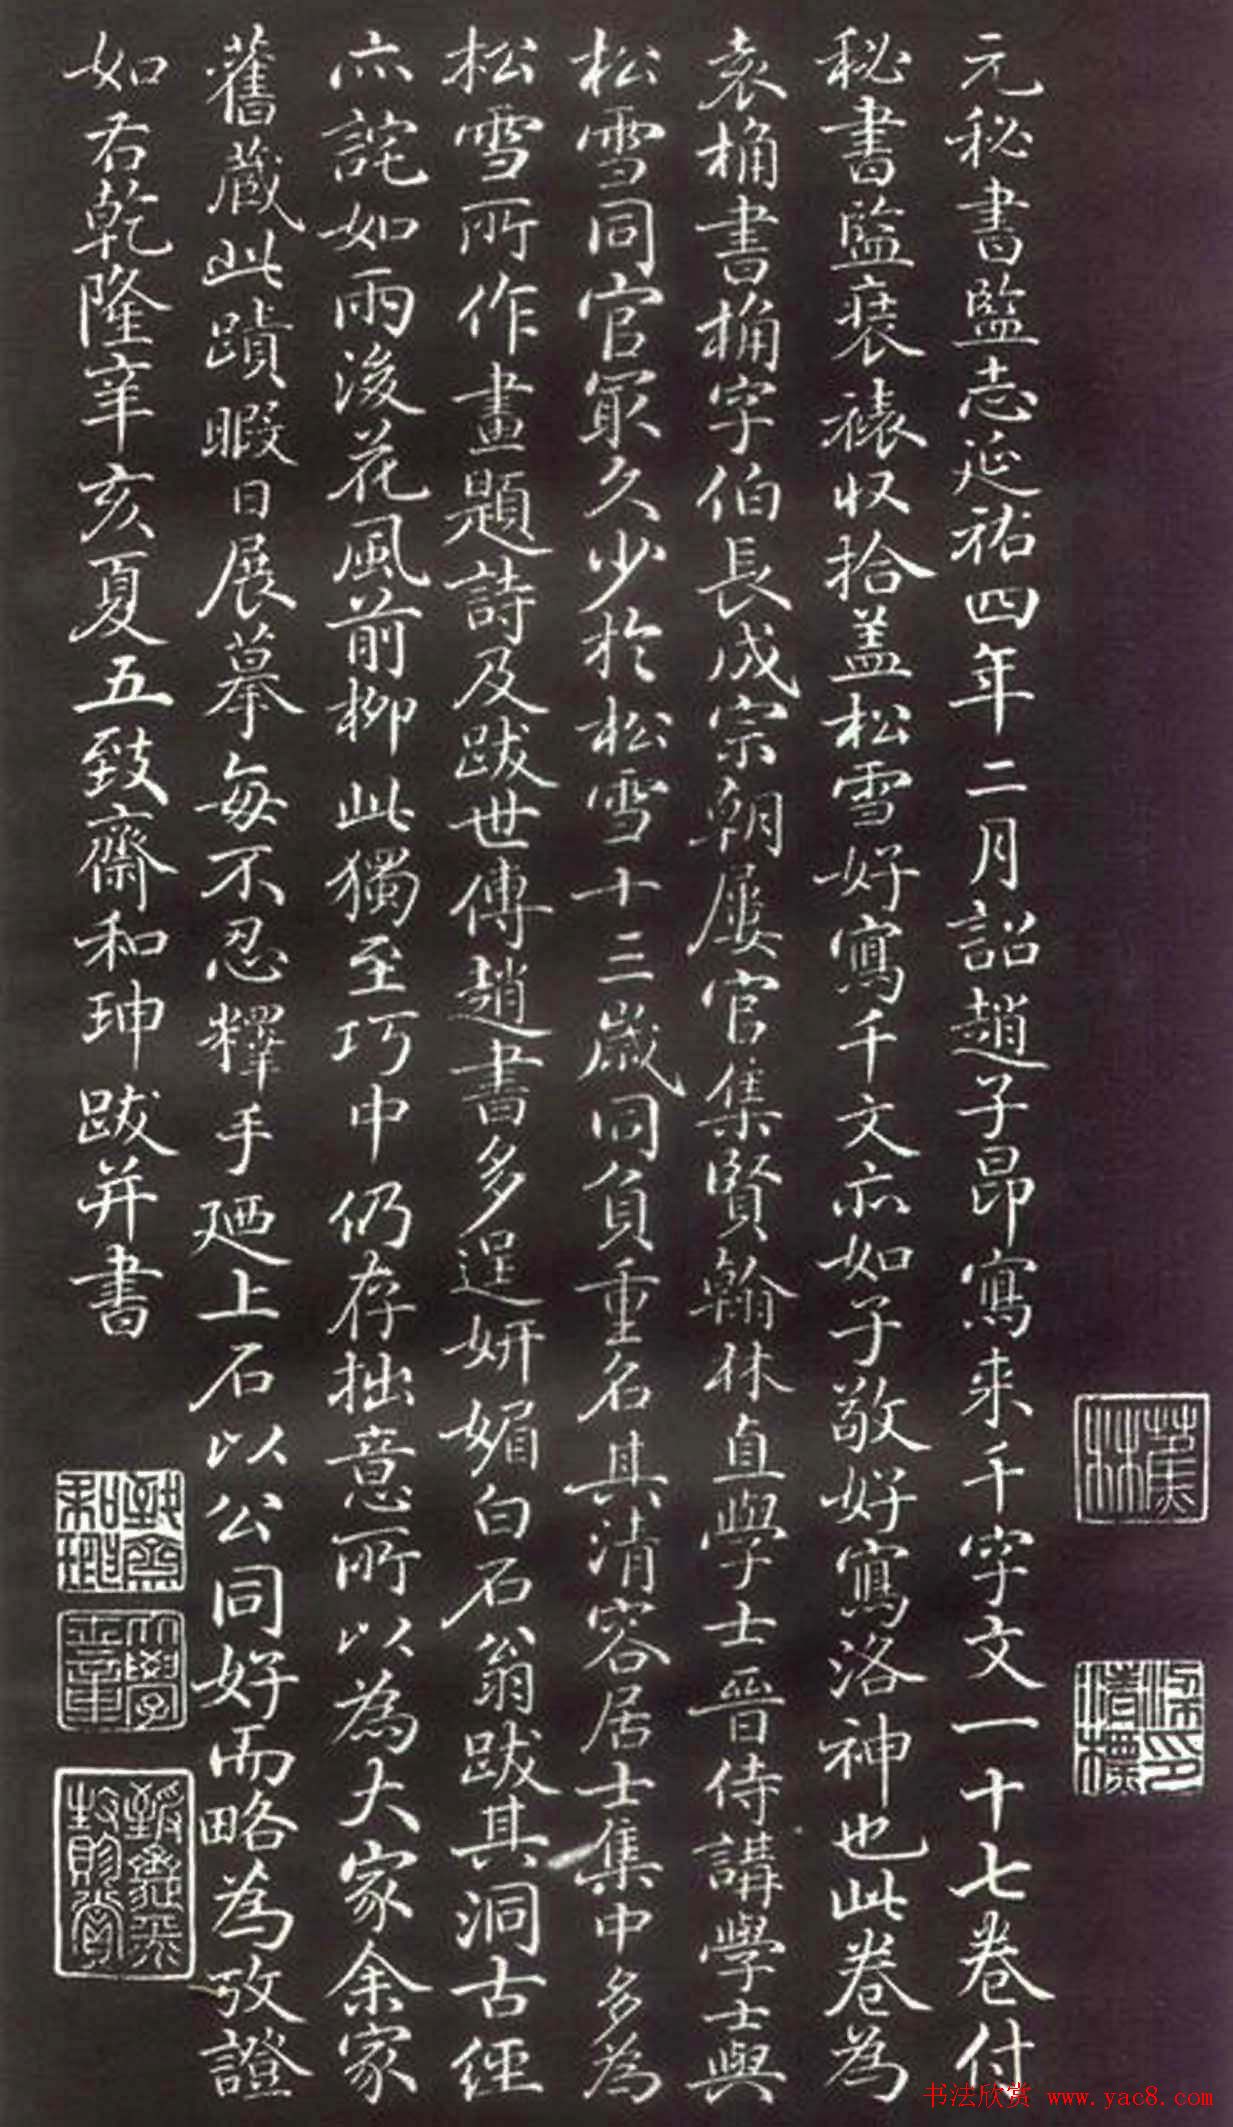 元秘書監志延祐四年二月詔趙子昂寫来千字文一十七卷付
秘書監裱褙収拾盖松雪好寫千文亦如子敬好寫洛神也此卷為
袁桷書桷字伯長成宗朝屢官集賢翰林直學士晉侍講學士與
松雪同官最久少於松雪十三歲同負重名其清容居士集中多為
松雪所作畫題詩及跋世傳趙書多逞妍媚白石翁跋其洞古經
亦詫如雨後花風前柳此獨至巧中仍存拙意所以為大家余家
舊藏此蹟暇日展摹每不忍釋手廼上石以公同好而略為攷證
如右乾隆辛亥夏五致齋和珅跋并書
蕉林
梁清標印
致齋和珅
大學士章
书法欣赏 www.yac8.com